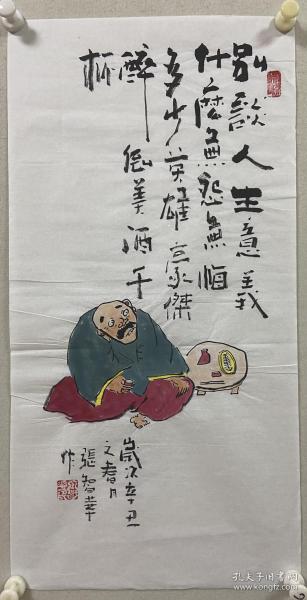 别谈人生意義
什麽無怨無悔
多少英雄豪傑
醉倒美酒千
杯
歲次辛丑
之春月
張智華
作
孔夫子旧书网
kongfz.com